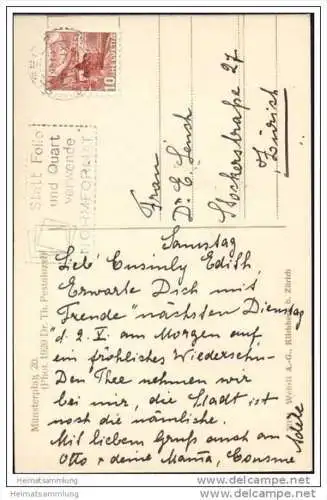 HELVETIA
10
Statt Folio
und Quart
verwende
NORMFORMAT
Frau
Dr. E. Leush
Stockerstraße 27
Zürich
Samstag
Lieb' Cusinly Edith,
Erwarte Dich mit
Freude nächsten Dienstag
d. 2. V. am Morgen auf
ein fröhliches Wiedersehn.
Den Thee nehmen wir
bei mir, die Stadt ist
noch die nämliche.
Mit liebem Gruß auch an
Otto & deine Mama, Cousine
Adèle
Münsterplatz 20.
(Phot. 1920 Dr. Th. Pestalozzi)
Wehrli A.-G., Kilchberg b. Zürich
Heimatsammlung
Heimatsammlung
www.heimatsammlung.de